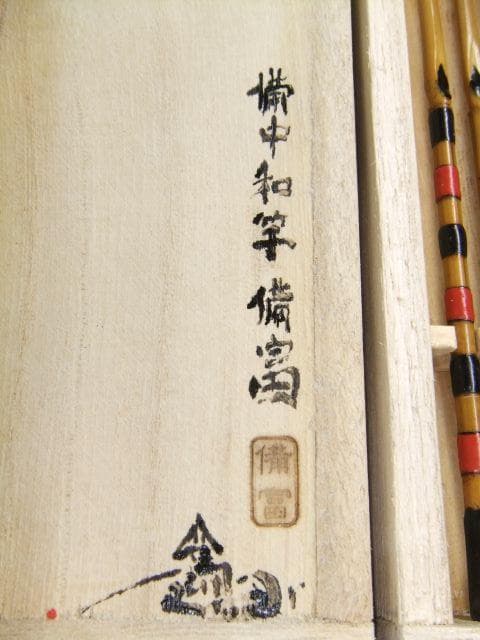 備中和竿 備富
備富